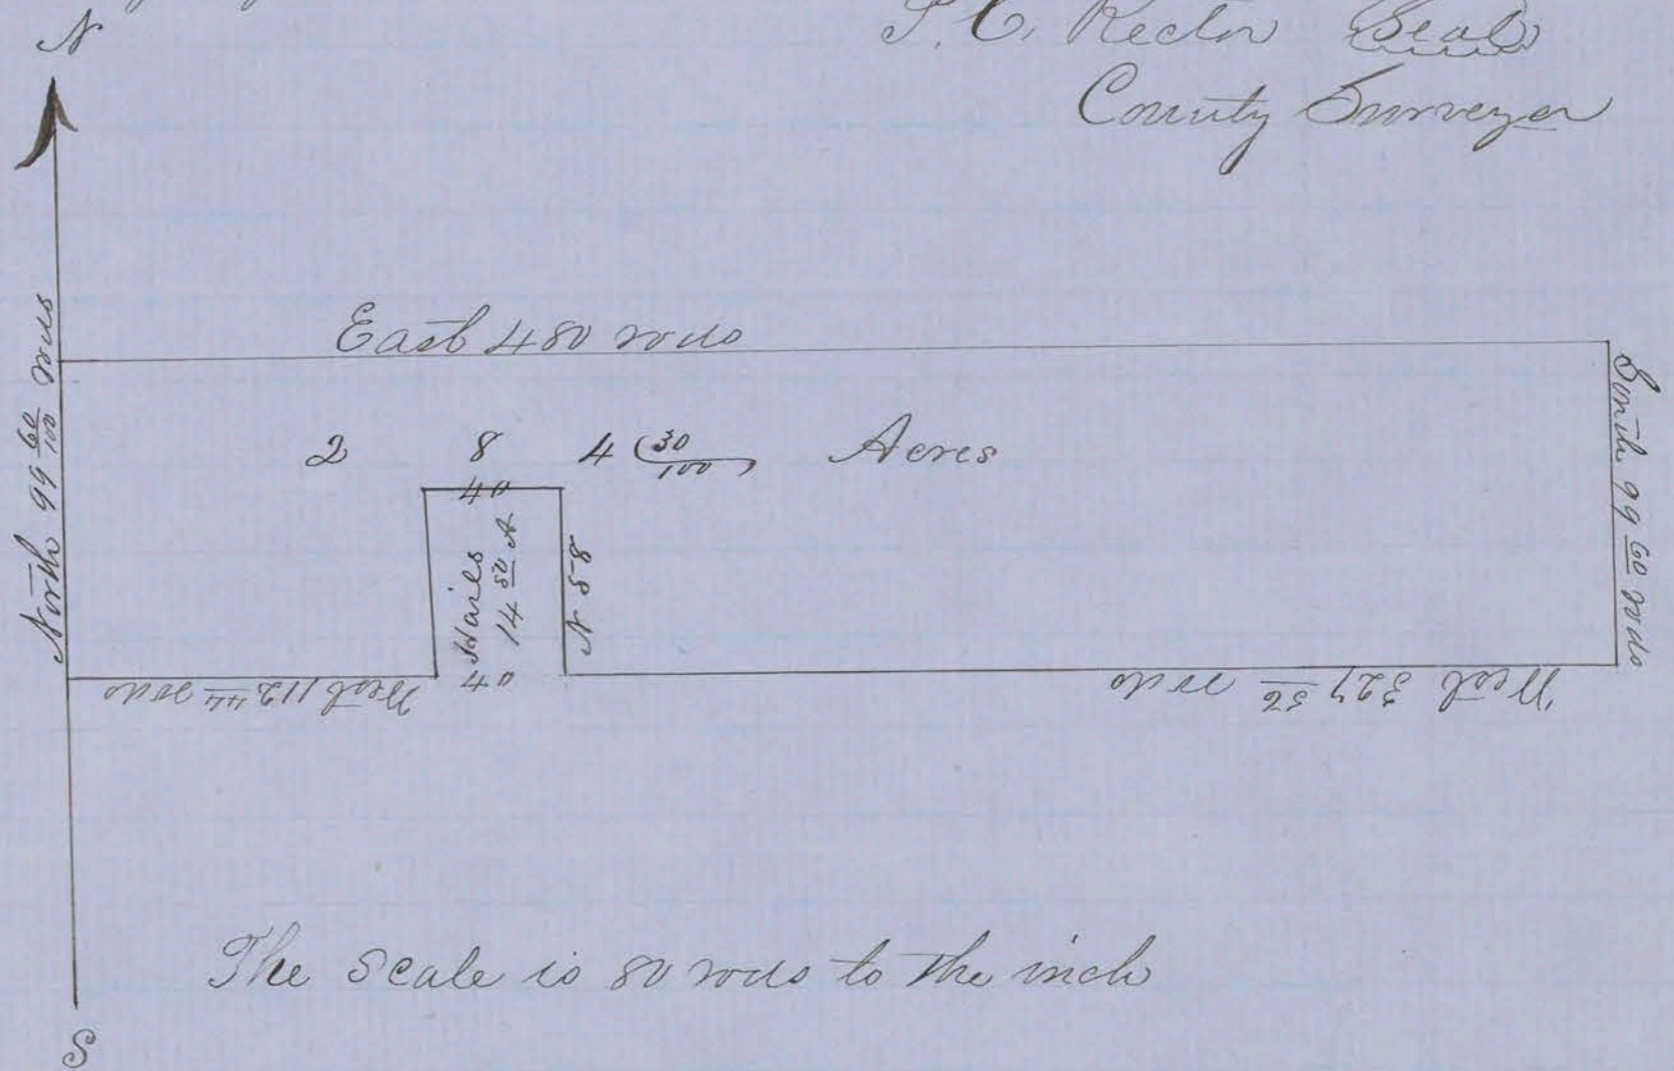 N
Rector Seal
County Surveyor
North 99 60/100 rods
East 480 rods
South 99 60 rods
2 8 4 30/100 Acres
40
14 50 A
N 58
40
West 112 44 rods
West 327 56 rods
The Scale is 80 rods to the inch
S